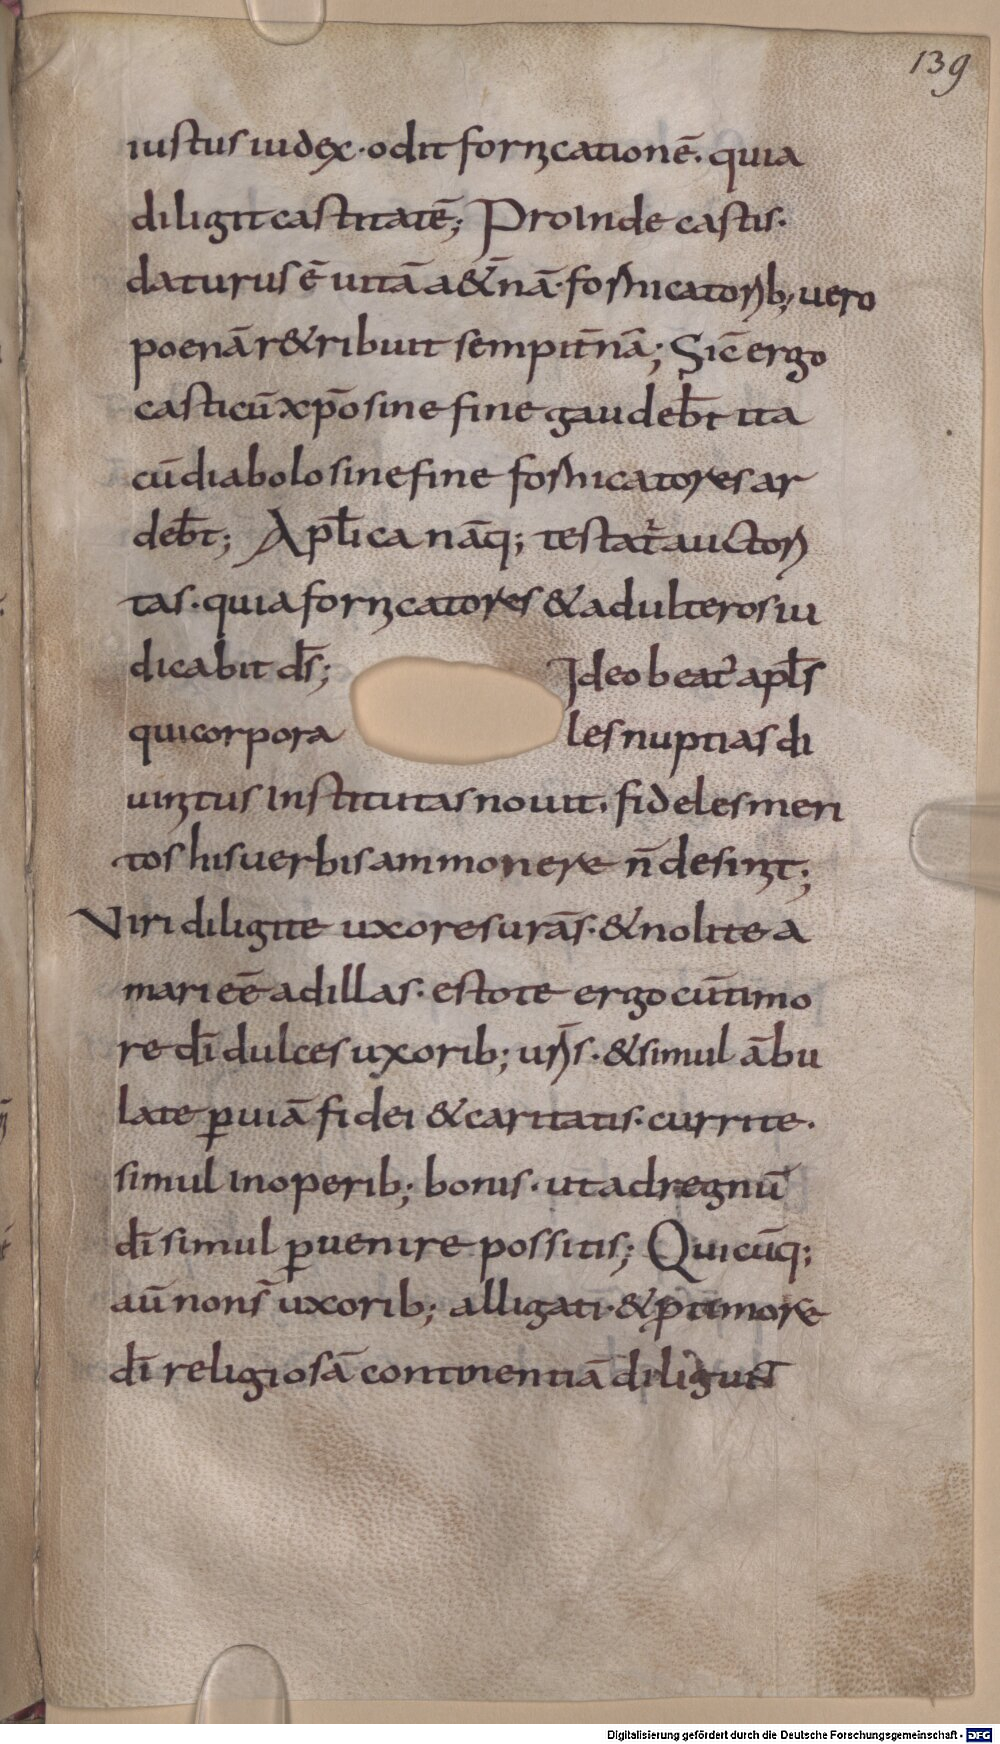 139
iustus iudex · odit fornicationē · quia
diligit castitatē; Proinde castis ·
daturus ē uitā a&̄nā · fornicatorib; uero
poenā r&ribuit sempit̄nā; Sic̄ ergo
casti cū xp̄o sine fine gaudeb̄t ita
cū diabolo sine fine fornicatores ar
deb̄t; Apl̄ica nāq; testat̄ auctori
tas · quia fornicatores & adulteros iu
dicabit d̄s; Ideo beat̄ apl̄s
qui corpora les nuptias di
uinitus institutas nouit · fideles meri
tos his uerbis ammonere n̄ desinit;
Viri diligite uxores urās · & nolite a
mari eē ad illas · estote ergo cū timo
re dī dulces uxorib; urīs · & simul ābu
late ꝑ uiā fidei & caritatis · currite ·
simul in operib; bonis · ut ad regnū
dī simul ꝑuenire possitis; Quicūq;
aū non s̄ uxorib; alligati · & ꝓ timore
dī religiosā continentiā diligunt
Digitalisierung gefördert durch die Deutsche Forschungsgemeinschaft - DFG